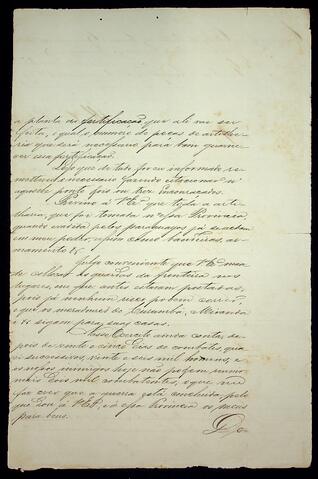 a planta da fortificação que ali vae ser
feita, e qual o numero de peças de artilhe-
ria que será necessario para bem guarne-
cer essa fortificação.
Logo que de tudo for eu informado re-
metterei o necessario fazendo estacionar n'
aquelle ponto dois ou tres Encouraçados.
Previno á VExª que toda a arti-
lharia, que foi tomada n'essa Provincia
quando invadida pelos paraguayos já se acha
em meu poder, assim como bandeiras, ar-
mamento &.
Julgo conveniente que VExª man-
de collocar os quarteis da fronteira nos
lugares, em que antes estavam postados,
pois já nenhum risco podem correr:
e que os moradores de Corumbá, Miranda
e &c sigam para suas casas.
Esse Exercito ainda conta, de-
pois de vinte e cinco dias de combates, que
succession, vinte e seis mil homens, e
os nossos inimigos hoje não podem reunir
mais dous mil combatentes, o que me
faz crer que a guerra está concluida, pelo
que dou á VExª, e á essa Provincia os meus
parabens.